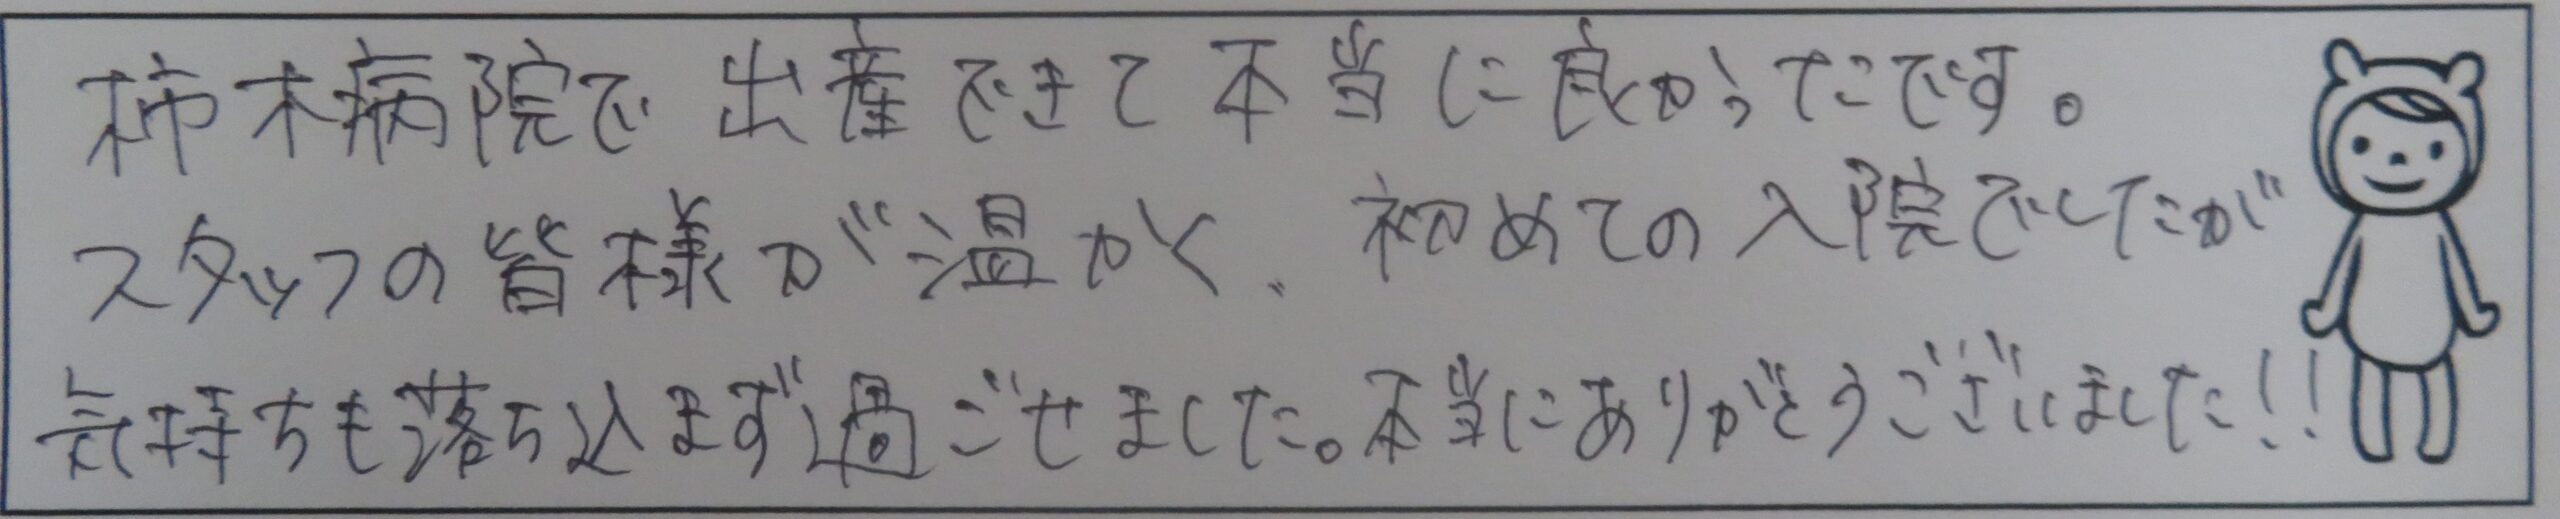 柿木病院で出産できて本当に良かったです。
スタッフの皆様が温かく、初めての入院でしたが
気持ちも落ち込まず過ごせました。本当にありがとうございました!!